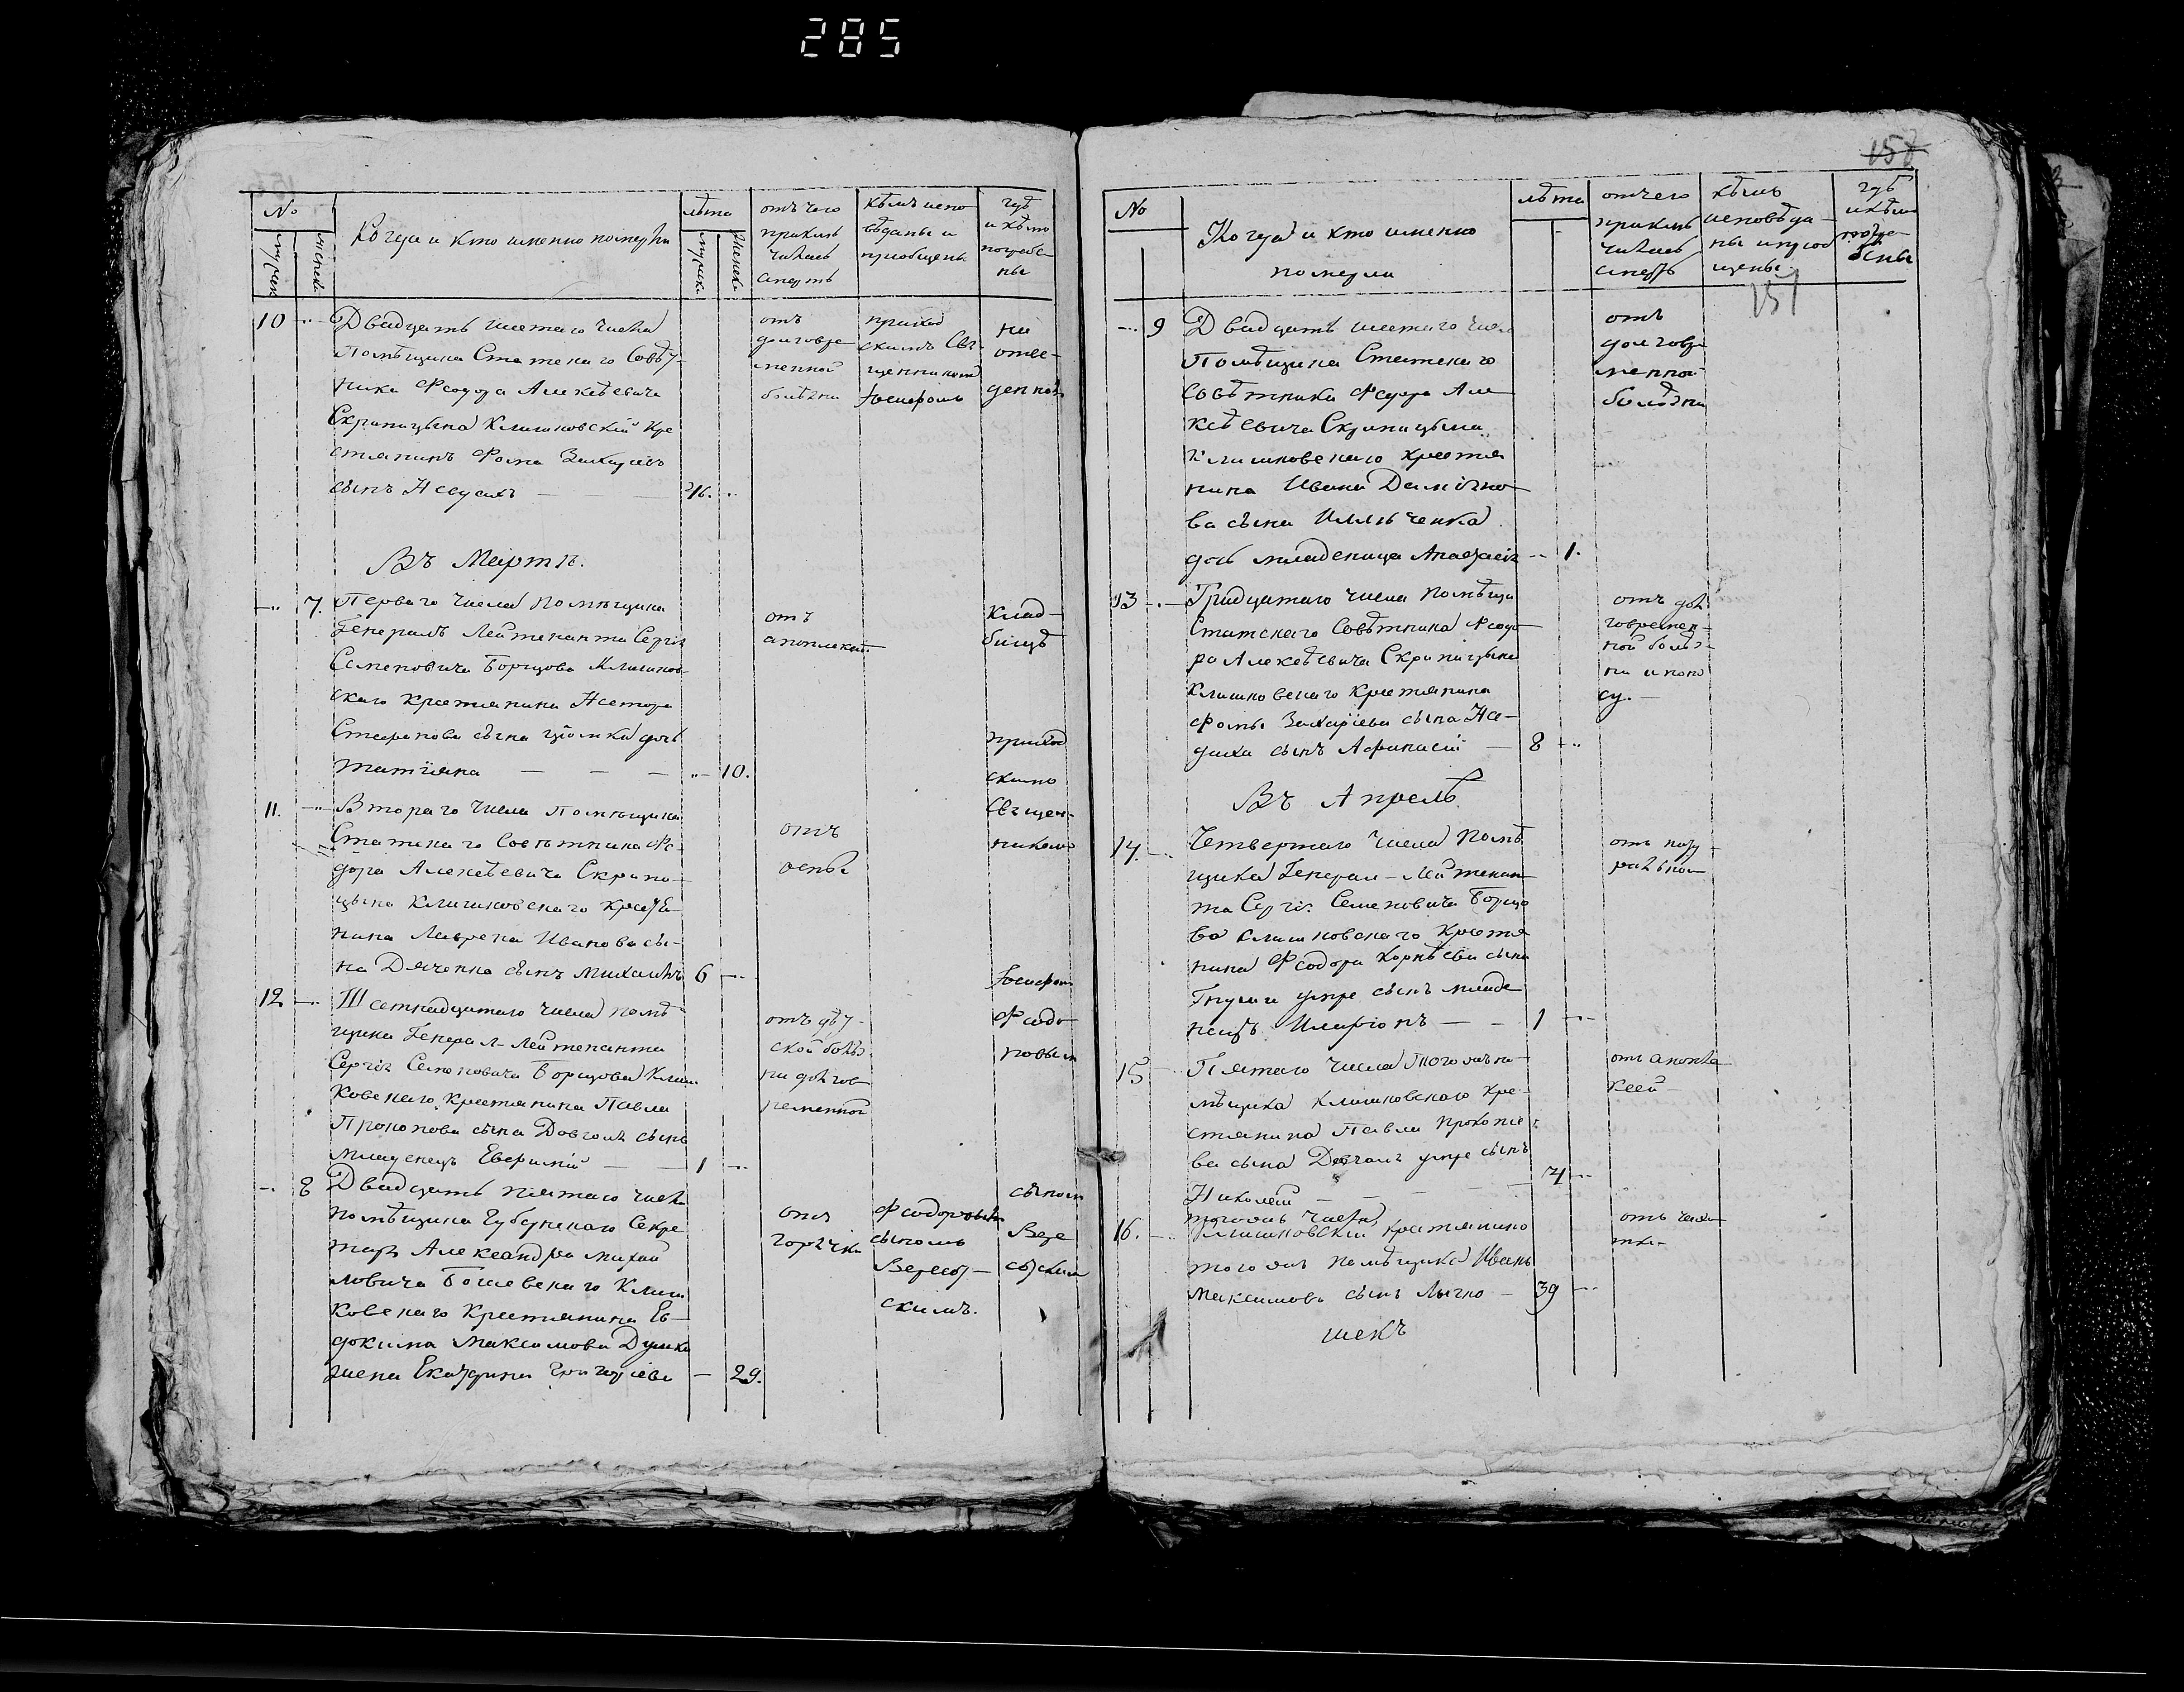 285
No
мужеск
женска
Когда и кто именно померли
лѣта
мужеска
женска
отъ чего
приклю
чилась
смерть
кѣмъ испо
вѣданы и
приобщены
гдѣ
и кѣмъ
погребе
ны
10
Двадцать шестаго числа
Помѣщика Статскаго Совѣт
ника Федора Алексѣевича
Скрипицына Клишковскій кре
стянинъ Фома Захаріевъ
сынъ
отъ
долговре
менной
болѣзни
приход
скимъ Свя
щенникомъ
Іосифомъ
на
отве
денномъ
Въ Мартѣ.
7. Перваго числа помѣщика
Генералъ Лейтенанта Сергія
Семеновича Борщова Клишков
скаго крестянина Нестора
Стефанова сына дочь
Татіяна — — — 10.
отъ
апоплексіи
клад-
бищѣ
приход
скимъ
Священ-
никомъ
11. Втораго числа Помѣщика
Статскаго Совѣтника Фе
дора Алексѣевича Скрипи
цына Клишковскаго крестя
нина Лаврена Иванова сы-
на Дяченка сынъ Михаилъ 6
отъ
оспы
Іосифом
12 Шестнадцатаго числа помѣ
щика Генерал-Лейтенанта
Сергія Семеновича Борщова Клиш
ковскаго крестянина Павла
Прокопова сына Довгаля сынъ
младенецъ Евфимій — 1
отъ дѣт
ской болѣз
ни долгов
ременной
Федо
ровым
8 Двадцать пятаго числа
помѣщика Губернскаго Секре
таря Александра Михай
ловича Клиш
ковскаго Крестянина Ев
докима Максимова
жена Екатерина Григоріева — 29.
отъ
горячки
Федоровым
сыномъ
Вересот
скимъ.
сыном
Вере
сотским
158
151
No
Когда и кто именно
померли
лѣта
отчего
приклю
чилась
смерть
кѣмъ
исповѣда
ны и приоб
щены
гдѣ
и кѣм
погре
бены
9 Двадцать шестаго числ
Помѣщика Статскаго
Совѣтника Федора Але
ксѣевича Скрипицына
Клишковскаго крестя
нина Ивана
ва сына Ильченка
дочь младеница Анастасія — 1.
отъ
долговре
менной
болѣзни
13 Тридцатаго числа помѣщи
Статскаго Совѣтника Федо
ра Алексѣевича Скрипицына
Клишковскаго крестянина
Фомы Захаріева сына
сынъ Афанасій — 8
отъ дол
говремен-
ной болѣз-
ни и поно
су. —
Въ Апрелѣ.
14. Четвертаго числа помѣ
щика Генерал-Лейтенан
та Сергія Семеновича Борщо
ва Клишковскаго крестя
нина Федора Корнѣева сына
умре сынъ младе
нецъ Иларіонъ — — 1
отъ нату
ральной
15 Пятаго числа тогожъ по-
мѣщика Клишковскаго кре-
стянина Павла Прокопіе
ва сына Довгаля умре сынъ
Николай — — —
отъ апопле
ксеи —
тогожъ числа
16. Клишковскій крестянинъ
того жъ помѣщика Иванъ
Максимовъ сынъ Лычко — 39
отъ чахо
тки-
шекъ